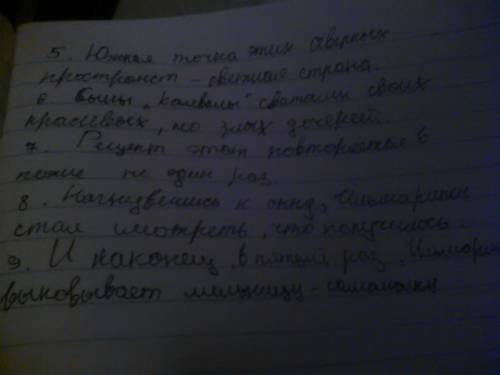 5. Южная точка этих северных
пространст - свежия страна.
6. "Калевалы" сватали своих
красивых, но злых дочерей.
7. Рецепт этот повторялся в
поэме не один раз.
8. Нагнувшись к окну, Ильмаринен
стал смотреть, что получилось.
9. И наконец, в пятый раз, Ильмарин
выковывает мельницу-самомолку